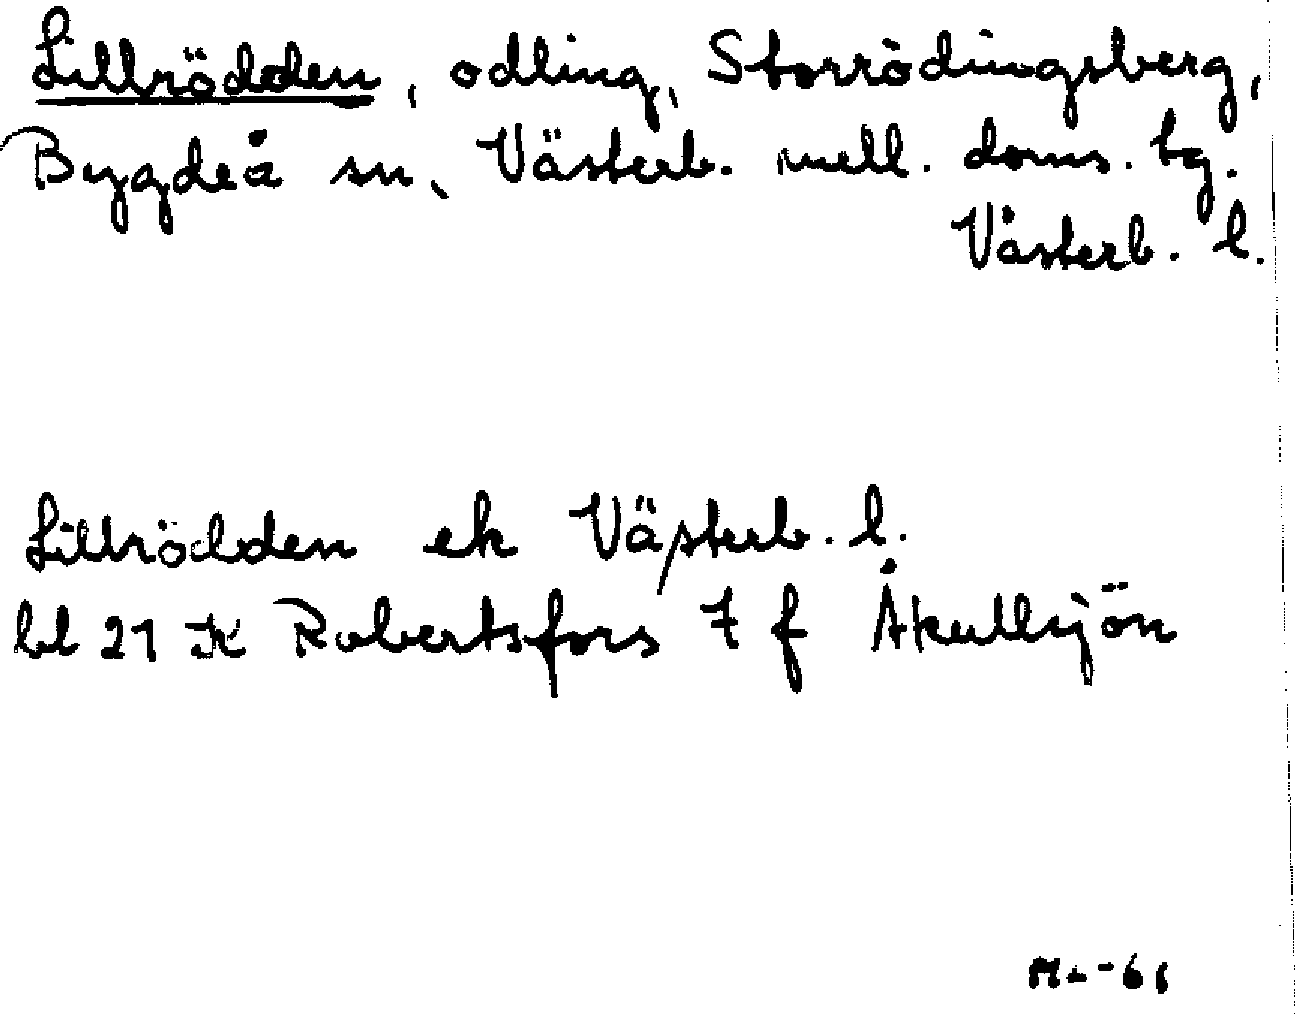 Lillrödden, odling, Storrödingsberg,
Bygdeå sn, Västerb. mell. doms. tg.
Västerb. l.
Lillrödden ek Västerb. l.
bl 21 K Robertsfors 7 f Åkullsjön
-61